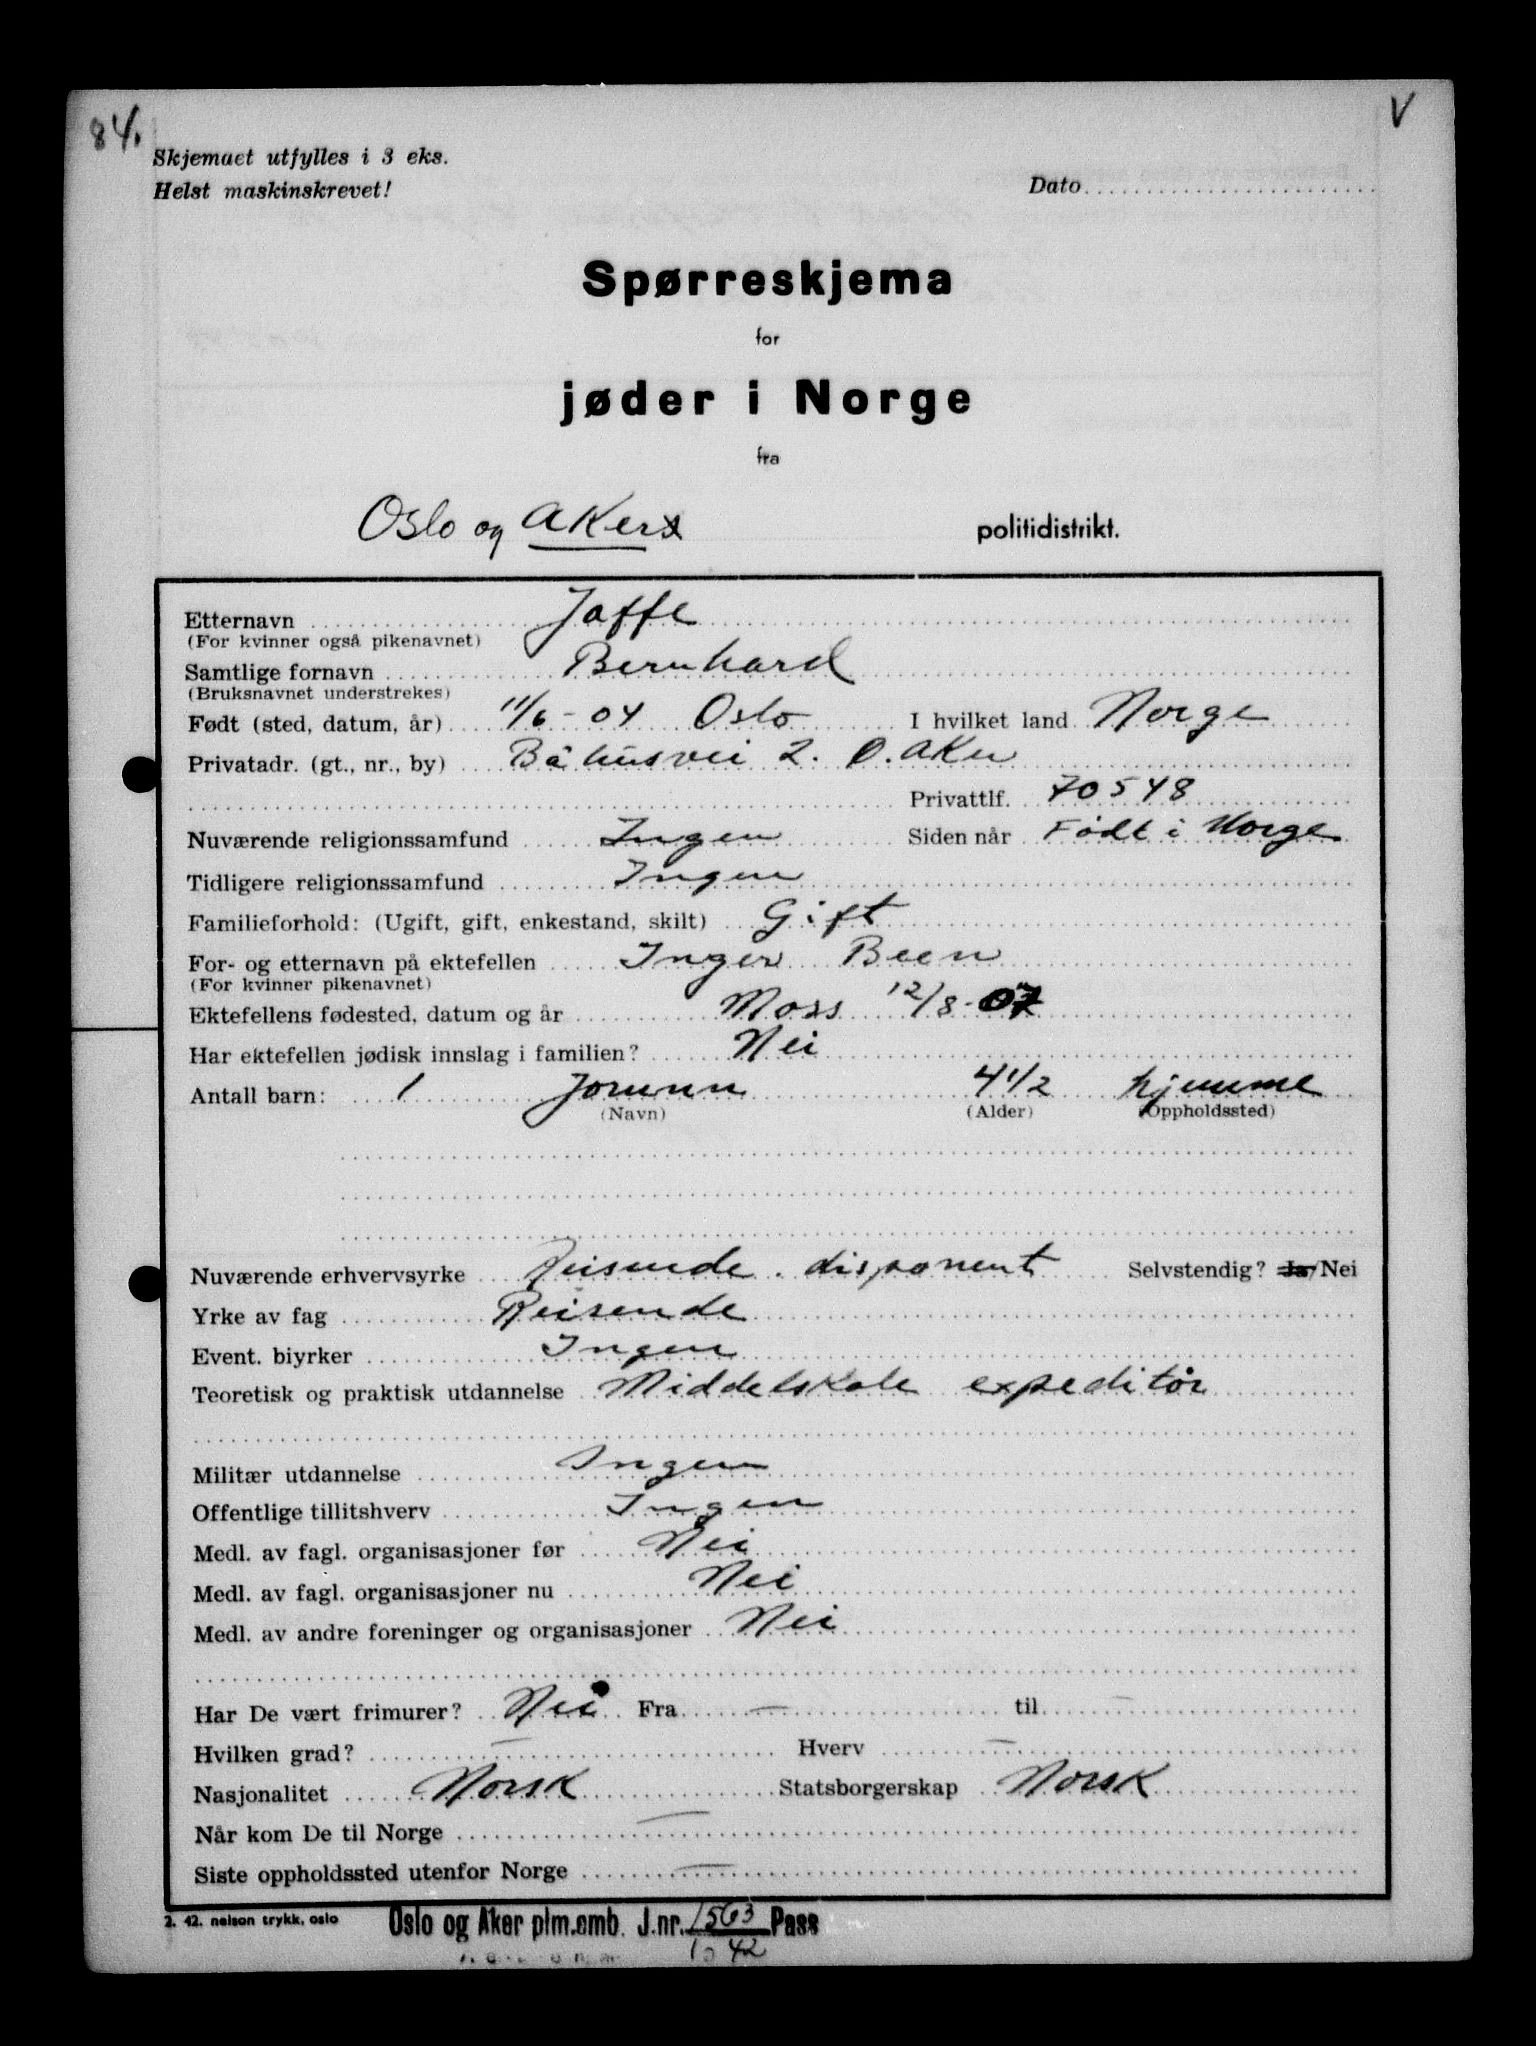 84. V
Skjemaet utfylles i 3 eks.
Helst maskinskrevet!
Dato
Spørreskjema
for
jøder i Norge
fra
Oslo og Aker politidistrikt.
Etternavn Jaffe
(For kvinner også pikenavnet)
Samtlige fornavn Bernhard
(Bruksnavnet understrekes)
Født (sted, datum, år) 11/6 - 04 Oslo I hvilket land Norge
Privatadr. (gt., nr., by) Båhusvei 2. Ø. Aker
Privattlf. 70548
Nuværende religionssamfund Ingen Siden når Født i Norge
Tidligere religionssamfund Ingen
Familieforhold: (Ugift, gift, enkestand, skilt) Gift
For- og etternavn på ektefellen Inger Been
(For kvinner pikenavnet)
Ektefellens fødested, datum og år Moss 12/8 - 07
Har ektefellen jødisk innslag i familien? Nei
Antall barn: 1 Jorunn 4 1/2 hjemme
(Navn) (Alder) (Oppholdssted)
Nuværende erhvervsyrke Reisende. disponent Selvstendig? Ja/Nei
Yrke av fag Reisende
Event. biyrker Ingen
Teoretisk og praktisk utdannelse Middelskole expeditör
Militær utdannelse Ingen
Offentlige tillitshverv Ingen
Medl. av fagl. organisasjoner før Nei
Medl. av fagl. organisasjoner nu Nei
Medl. av andre foreninger og organisasjoner Nei
Har De vært frimurer? Nei Fra — til —
Hvilken grad? — Hverv —
Nasjonalitet Norsk Statsborgerskap Norsk
Når kom De til Norge —
Siste oppholdssted utenfor Norge —
2. 42. nelson trykk, oslo
Oslo og Aker plm.emb. J.nr. 1563 Pass
42